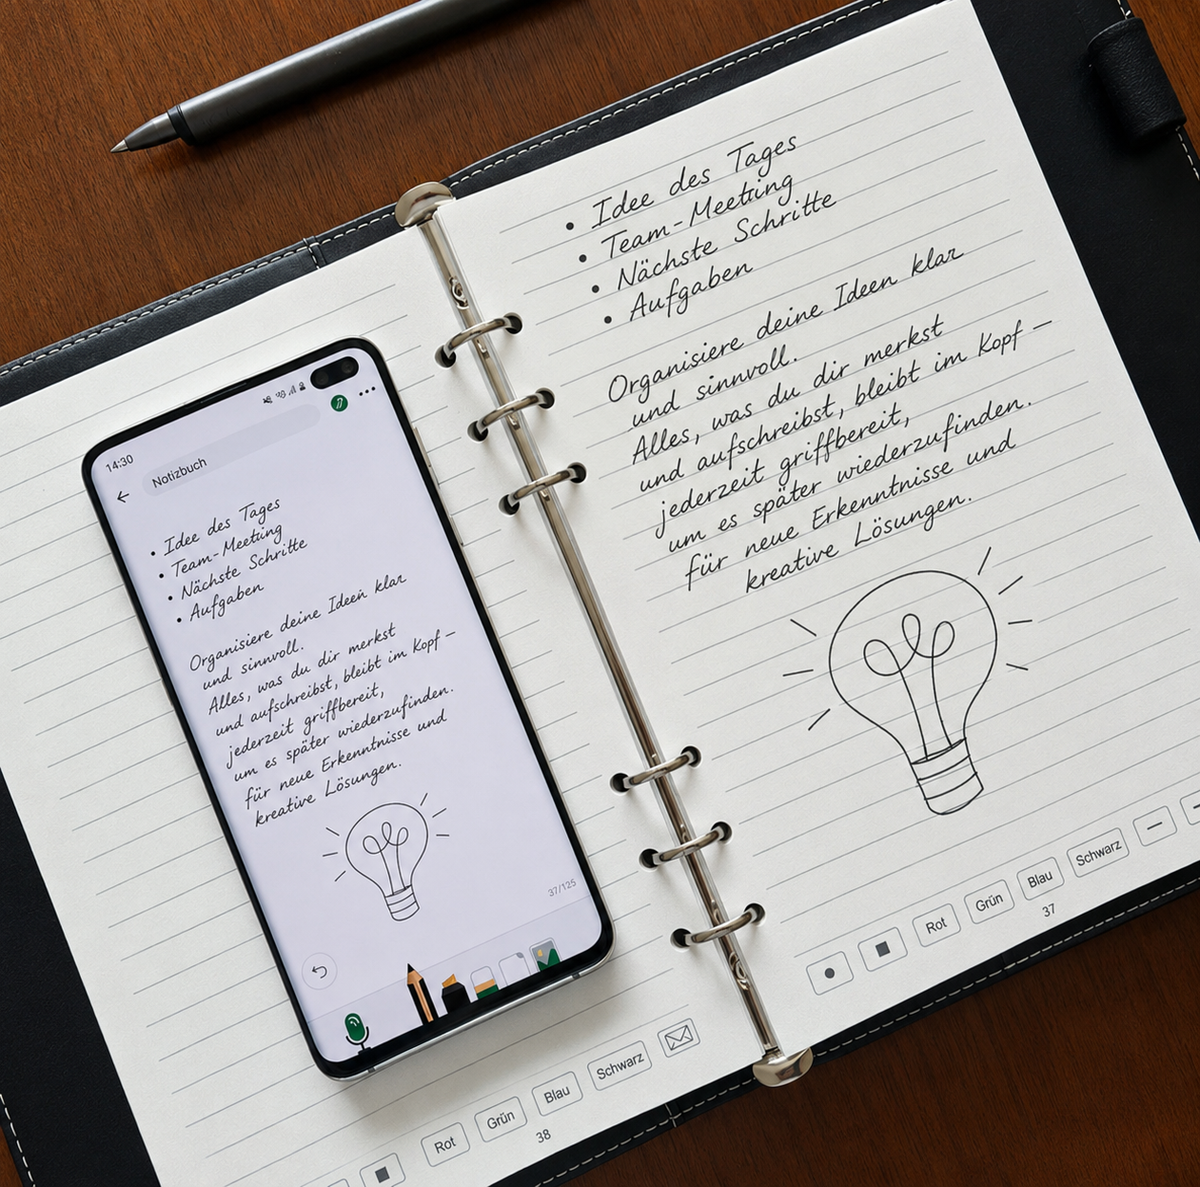 14:30
Notizbuch
• Idee des Tages
• Team-Meeting
• Nächste Schritte
• Aufgaben
Organisiere deine Ideen klar
und sinnvoll.
Alles, was du dir merkst
und aufschreibst, bleibt im Kopf –
jederzeit griffbereit,
um es später wiederzufinden.
für neue Erkenntnisse und
kreative Lösungen.
37/125
Rot
Grün
Blau
Schwarz
38
• Idee des Tages
• Team-Meeting
• Nächste Schritte
• Aufgaben
Organisiere deine Ideen klar
und sinnvoll.
Alles, was du dir merkst
und aufschreibst, bleibt im Kopf –
jederzeit griffbereit,
um es später wiederzufinden.
für neue Erkenntnisse und
kreative Lösungen.
Rot
Grün
Blau
Schwarz
37